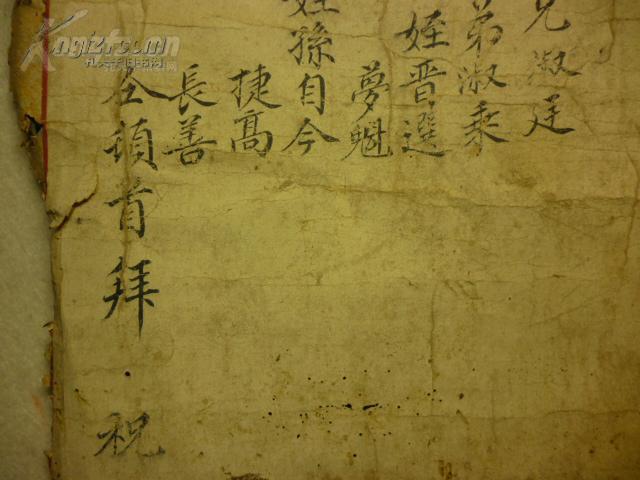 兄淑廷
弟淑秉
姪晋選
夢魁
姪孫自今
捷髙
長善
仝頓首拜
祝
Kongfz.com
孔夫子旧书网